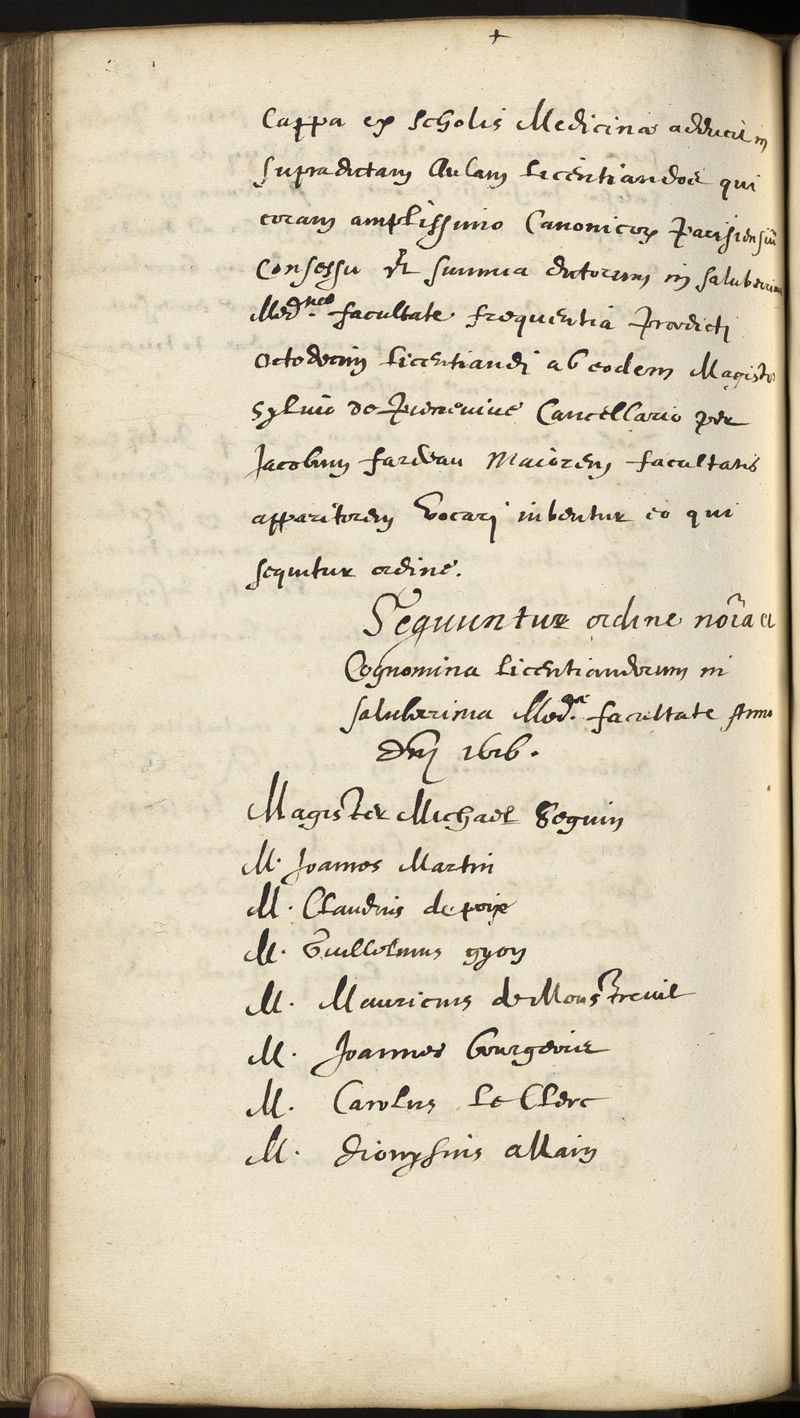 +
Cappa ex scholis Medicinæ adducit in
supradictam Aulam licentiandos qui
coram amplissimo Canonicorȝ Parisiensiū
Consessu et summa doctorum in saluberrima
Med.nes facultate frequentia prædicti
Octodecim licentiandi ab eodem Magistro
Sylvio de Pierrevive Cancellario per
Jacobum fardeau Maiorem facultatis
apparitorem Vocari iubentur eo qui
sequitur ordine.
Sequuntur ordine noīa et
Cognomina licentiandorum in
saluberrima Med.æ facultate Anno
dnj 1616.
Magister Michael Seguin
M. Joannes Martin
M. Claudius de poix
M. Guillelmus gyon
M. Mauricius de Monstreuil
M. Joannes bourgeois
M. Carolus Le Clerc
M. dionysius allain